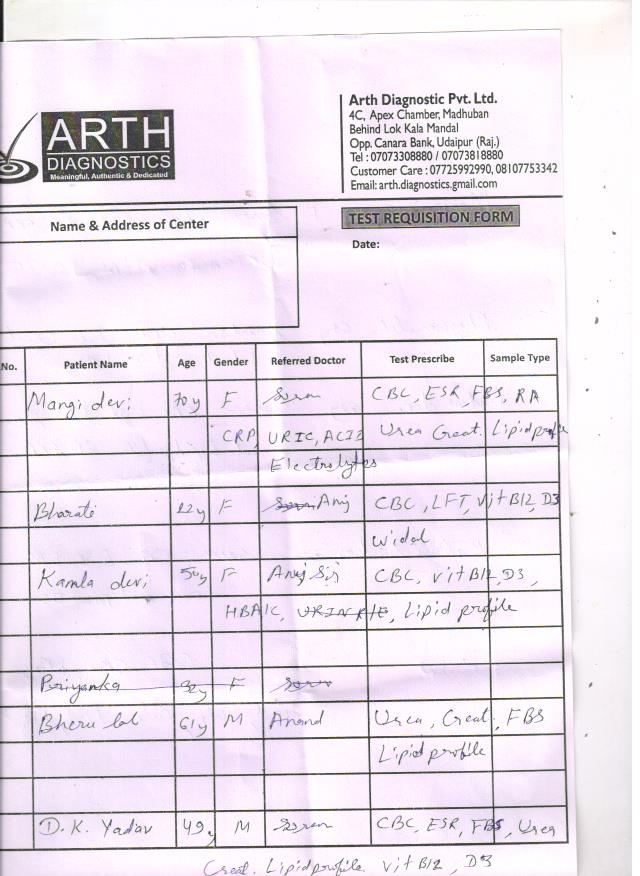 ARTH
DIAGNOSTICS
Meaningful, Authentic & Dedicated
Arth Diagnostic Pvt. Ltd.
4C, Apex Chamber, Madhuban
Behind Lok Kala Mandal
Opp. Canara Bank, Udaipur (Raj.)
Tel : 07073308880 / 07073818880
Customer Care : 07725992990, 08107753342
Email: arth.diagnostics.gmail.com
Name & Address of Center
TEST REQUISITION FORM
Date:
No. Patient Name Age Gender Referred Doctor Test Prescribe Sample Type
Mangi devi 70y F CBC, ESR, FBS, RA
CRP, URIC, ACID Urea Creat. Lipid profile
Electrolytes
Bharati 22y F Anuj CBC, LFT, Vit B12, D3
widal
Kamla devi 50y F Anuj Sir CBC, Vit B12, D3,
HBA1C, URINE, Lipid profile
Priyanka 32y F
Bheru lal 61y M Anand Urea, Creat, FBS
Lipid profile
D.K. Yadav 49y M CBC, ESR, FBS, Urea
Creat. Lipid profile Vit B12, D3